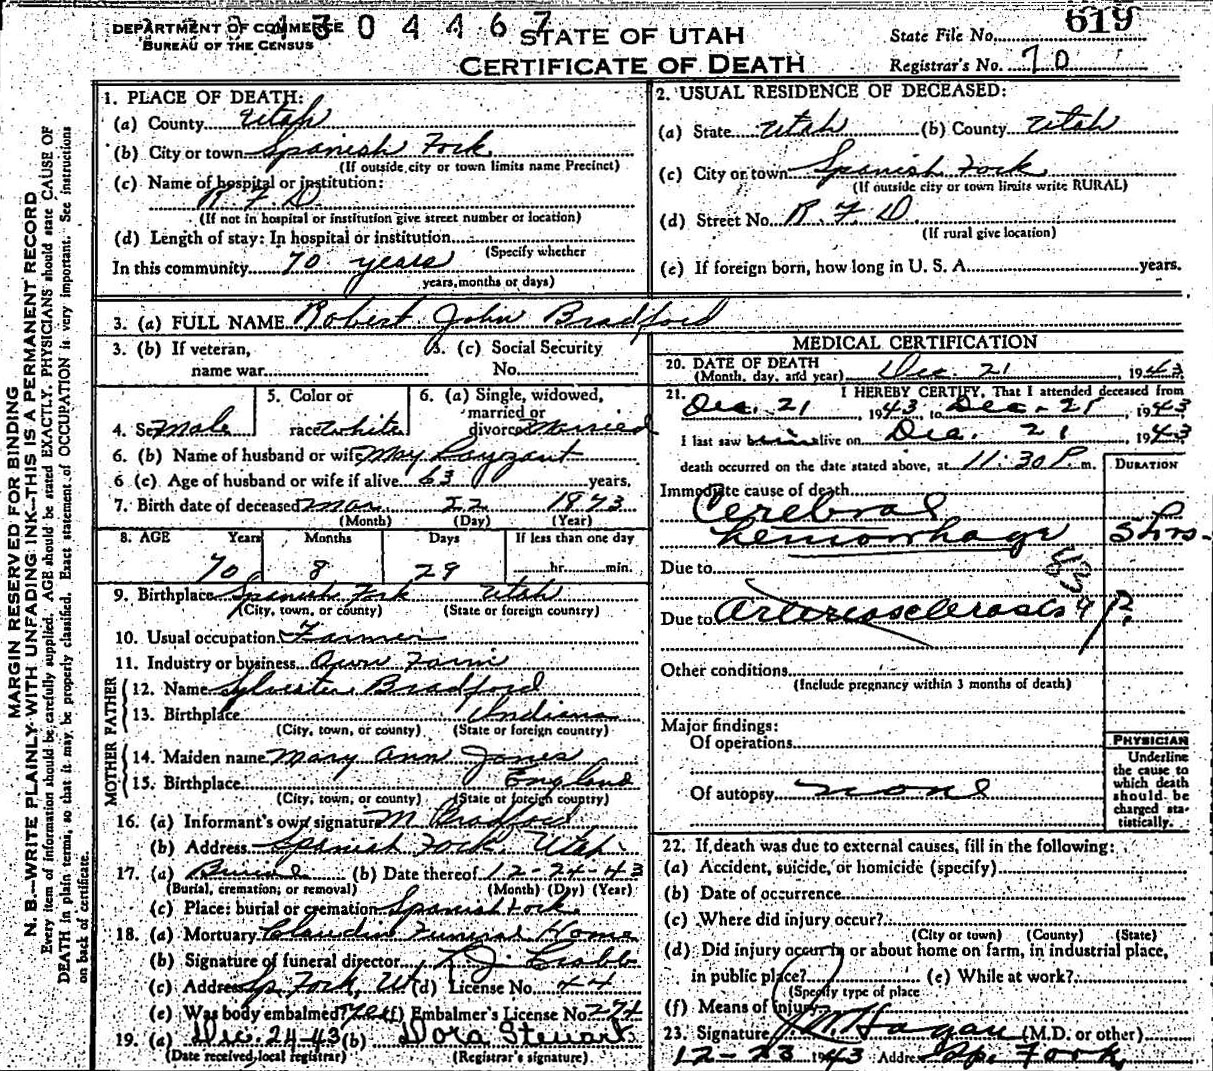 DEPARTMENT OF COMMERCE
BUREAU OF THE CENSUS
0 4 4 6 7
STATE OF UTAH
CERTIFICATE OF DEATH
State File No. 619
Registrar's No. 70
MARGIN RESERVED FOR BINDING
N. B.—WRITE PLAINLY WITH UNFADING INK—THIS IS A PERMANENT RECORD
Every item of information should be carefully supplied. AGE should be stated EXACTLY. PHYSICIANS should state CAUSE OF
DEATH in plain terms, so that it may be properly classified. Exact statement of OCCUPATION is very important. See instructions
on back of certificate.
1. PLACE OF DEATH:
(a) County Utah
(b) City or town Spanish Fork
(If outside city or town limits name Precinct)
(c) Name of hospital or institution:
R F D
(If not in hospital or institution give street number or location)
(d) Length of stay: In hospital or institution
(Specify whether
In this community 70 years
years, months or days)
2. USUAL RESIDENCE OF DECEASED:
(a) State Utah (b) County Utah
(c) City or town Spanish Fork
(If outside city or town limits write RURAL)
(d) Street No. R. F. D.
(If rural give location)
(e) If foreign born, how long in U. S. A. years.
3. (a) FULL NAME Robert John Bradford
3. (b) If veteran,
name war
3. (c) Social Security
No.
4. Sex Male
5. Color or
race white
6. (a) Single, widowed,
married or
divorced Married
6. (b) Name of husband or wife May
6 (c) Age of husband or wife if alive 63 years,
7. Birth date of deceased Mar 22 1873
(Month) (Day) (Year)
8. AGE Years Months Days If less than one day
70 8 29 hr. min.
9. Birthplace Spanish Fork Utah
(City, town, or county) (State or foreign country)
10. Usual occupation Farmer
11. Industry or business Own Farm
FATHER
12. Name Sylvester Bradford
13. Birthplace Indiana
(City, town, or county) (State or foreign country)
MOTHER
14. Maiden name Mary Ann Jones
15. Birthplace England
(City, town, or county) (State or foreign country)
16. (a) Informant's own signature M Bradford
(b) Address Spanish Fork, Utah
17. (a) Burial (b) Date thereof 12-24-43
(Burial, cremation, or removal) (Month) (Day) (Year)
(c) Place: burial or cremation Spanish Fork
18. (a) Mortuary Claudin Funeral Home
(b) Signature of funeral director
(c) Address Sp. Fork, Ut (d) License No. 44
(e) Was body embalmed? Yes (f) Embalmer's License No. 274
19. (a) Dec. 24-43 (b) Dora Stewart
(Date received local registrar) (Registrar's signature)
MEDICAL CERTIFICATION
20. DATE OF DEATH
(Month, day, and year) Dec. 21, 1943
21. I HEREBY CERTIFY, That I attended deceased from
Dec. 21, 1943, to Dec. 21, 1943
I last saw him alive on Dec. 21 1943
death occurred on the date stated above, at 11:30 P. m.
DURATION
Immediate cause of death
Cerebral
hemorrhage 5 hrs.
Due to
Due to Arteriosclerosis ?
Other conditions
(Include pregnancy within 3 months of death)
Major findings:
Of operations
Of autopsy none
PHYSICIAN
Underline
the cause to
which death
should be
charged sta-
tistically.
22. If death was due to external causes, fill in the following:
(a) Accident, suicide, or homicide (specify)
(b) Date of occurrence
(c) Where did injury occur?
(City or town) (County) (State)
(d) Did injury occur in or about home on farm, in industrial place,
in public place? (e) While at work?
(Specify type of place
(f) Means of injury
23. Signature Hagan (M.D. or other)
12-23 1943 Address Sp. Fork,